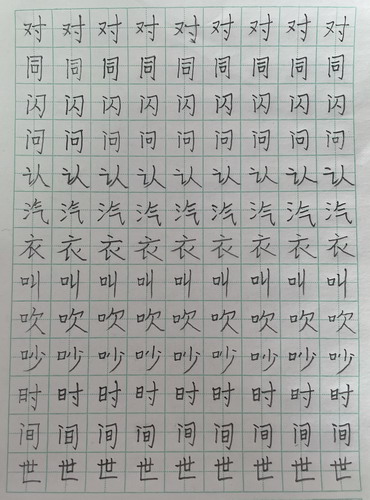 对对对对对对对对对
同同同同同同同同同
闪闪闪闪闪闪闪闪闪
问问问问问问问问问
认认认认认认认认认
汽汽汽汽汽汽汽汽汽
衣衣衣衣衣衣衣衣衣
叫叫叫叫叫叫叫叫叫
吹吹吹吹吹吹吹吹吹
吵吵吵吵吵吵吵吵吵
时时时时时时时时时
间间间间间间间间间
世世世世世世世世世